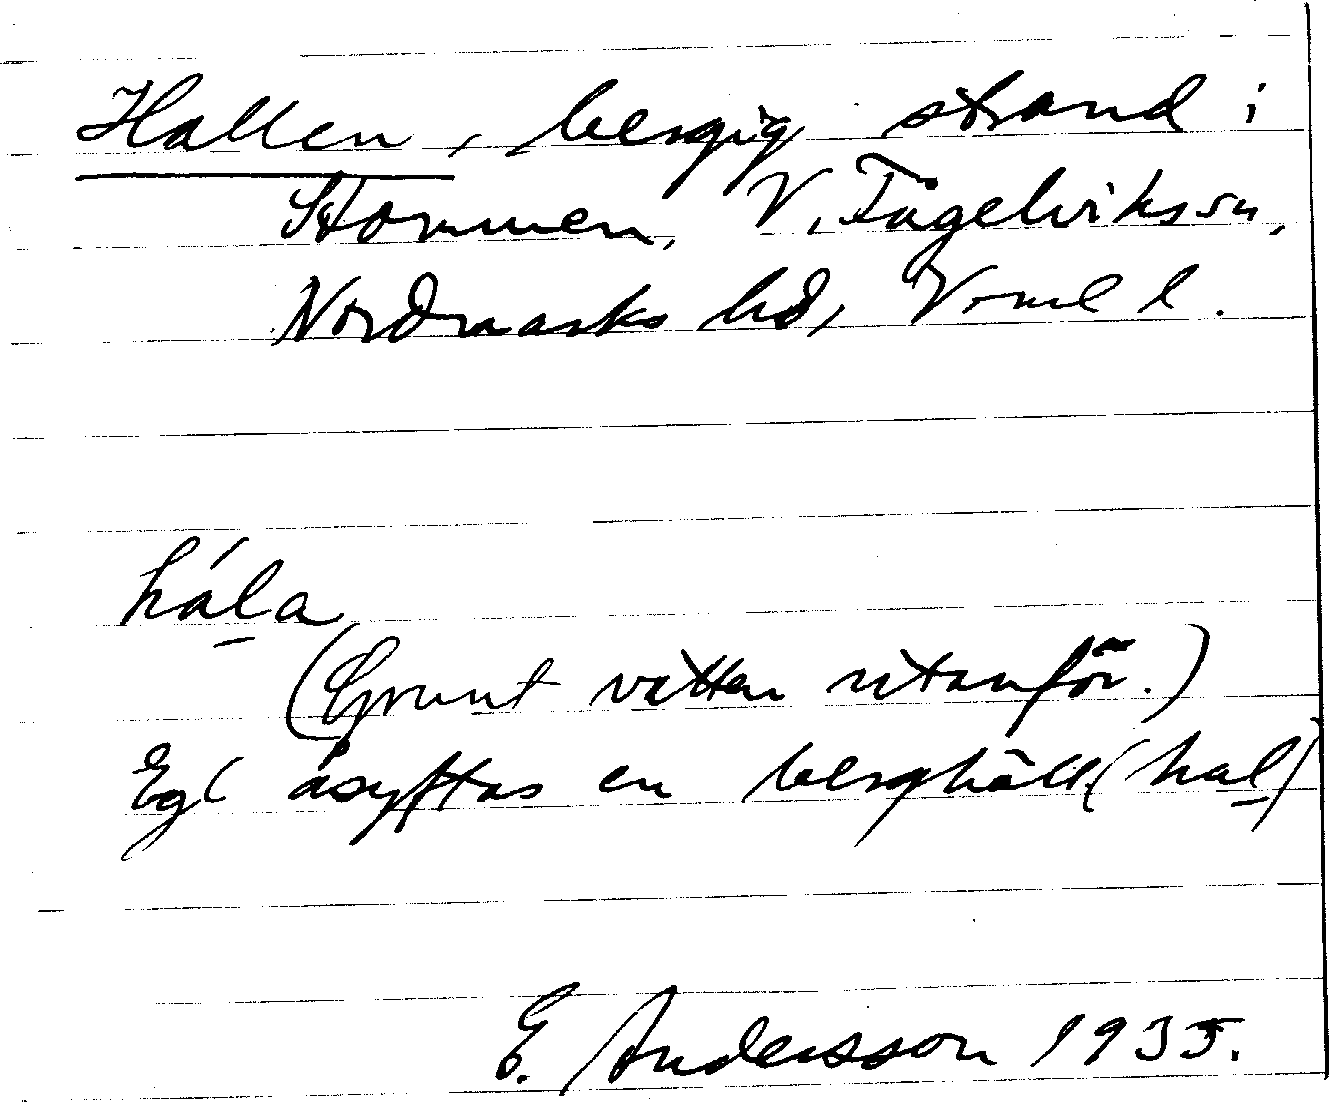 Hallen, bergig strand i
Stommen, V. Fågelvikssn,
Nordmarks hd, Vrml l.
hála
(Grunt vatten utanför.)
Egl åsyftas en berghäll (hal)
E. Andersson 1935.